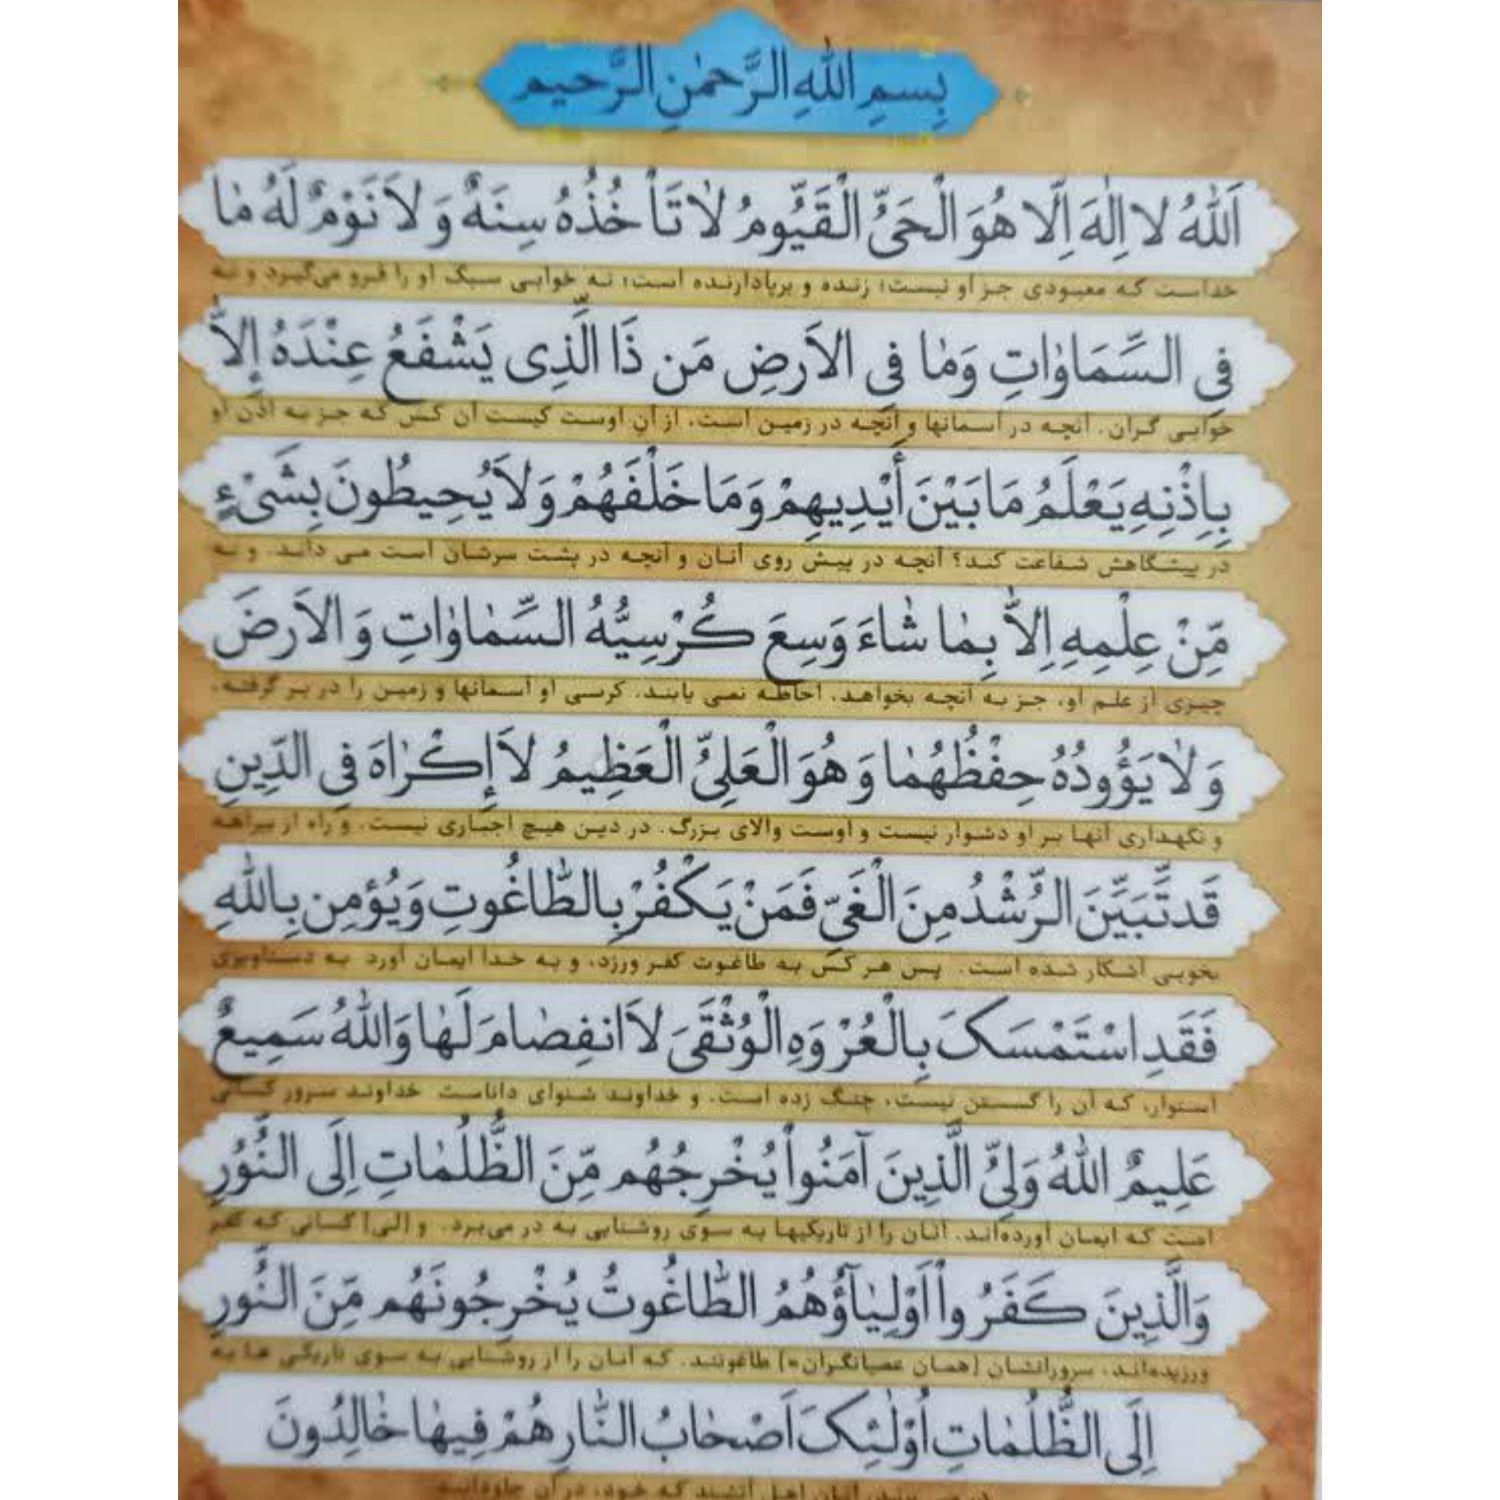 بِسمِ اللّٰهِ الرَّحمٰنِ الرَّحیم
اَللّٰهُ لا اِلٰهَ اِلّا هُوَ الْحَیُّ الْقَیُّومُ لاٰ تَأْ خُذُهُ سِنَهٌ وَ لاَ نَوْمٌ لَهُ مٰا
خداست که معبودی جز او نیست؛ زنده و برپادارنده است؛ نه خوابی سبک او را فرو می‌گیرد و نه
فِی السَّمَاوٰاتِ وَمٰا فِی الاَرضِ مَن ذَا الَّذِی یَشْفَعُ عِنْدَهُ إِلاّٰ
خوابی گران. آنچه در آسمانها و آنچه در زمین است، از آنِ اوست کیست آن کس که جز به اذن او
بِاِذْنِهِ یَعْلَمُ مَا بَیْنَ أَیْدِیهِمْ وَمَا خَلْفَهُمْ وَلاَ یُحِیطُونَ بِشَیْءٍ
در پیشگاهش شفاعت کند؟ آنچه در پیش روی آنان و آنچه در پشت سرشان است می داند. و به
مِّنْ عِلْمِهِ اِلاّٰ بِمٰا شٰاءَ وَسِعَ کُرْسِیُّهُ السَّمٰاوٰاتِ وَ الاَرضَ
چیزی از علم او، جز به آنچه بخواهد، احاطه نمی یابند. کرسی او آسمانها و زمین را در بر گرفته،
وَ لاٰ یَؤُودُهُ حِفْظُهُمٰا وَ هُوَ الْعَلِیُّ الْعَظِیمُ لاَ إِکْرٰاهَ فِی الدِّینِ
و نگهداری آنها بر او دشوار نیست و اوست والای بزرگ. در دین هیچ اجباری نیست. و راه از بیراهه
قَد تَّبَیَّنَ الرُّشْدُ مِنَ الْغَیِّ فَمَنْ یَکْفُرْ بِالطّٰاغُوتِ وَیُؤمِن بِاللّٰهِ
بخوبی آشکار شده است. پس هر کس به طاغوت کفر ورزد، و به خدا ایمان آورد به دستاویزی
فَقَدِ اسْتَمْسَکَ بِالْعُرْوَهِ الْوُثْقَیَ لاَ انفِصٰامَ لَهٰا وَاللّٰهُ سَمِیعٌ
استوار، که آن را گسستن نیست، چنگ زده است. و خداوند شنوای داناست خداوند سرور کسانی
عَلِیمٌ اللّٰهُ وَلِیُّ الَّذِینَ آمَنُواْ یُخْرِجُهُم مِّنَ الظُّلُمٰاتِ اِلَی النُّوُرِ
است که ایمان آورده‌اند. آنان را از تاریکیها به سوی روشنایی به در می‌برد. و [لی] کسانی که کفر
وَالَّذِینَ کَفَرُواْ اَوْلِیٰآؤُهُمُ الطّٰاغُوتُ یُخْرِجُونَهُم مِّنَ النُّورِ
ورزیده‌اند، سرورانشان [همان عصیانگران=] طاغوتند، که آنان را از روشنایی به سوی تاریکی ها به
اِلَی الظُّلُمٰاتِ اُوْلٰئِکَ اَصْحٰابُ النّٰارِ هُمْ فِیهٰا خٰالِدُونَ
در می برند. آنان اهل آتشند که خود، در آن جاودانند